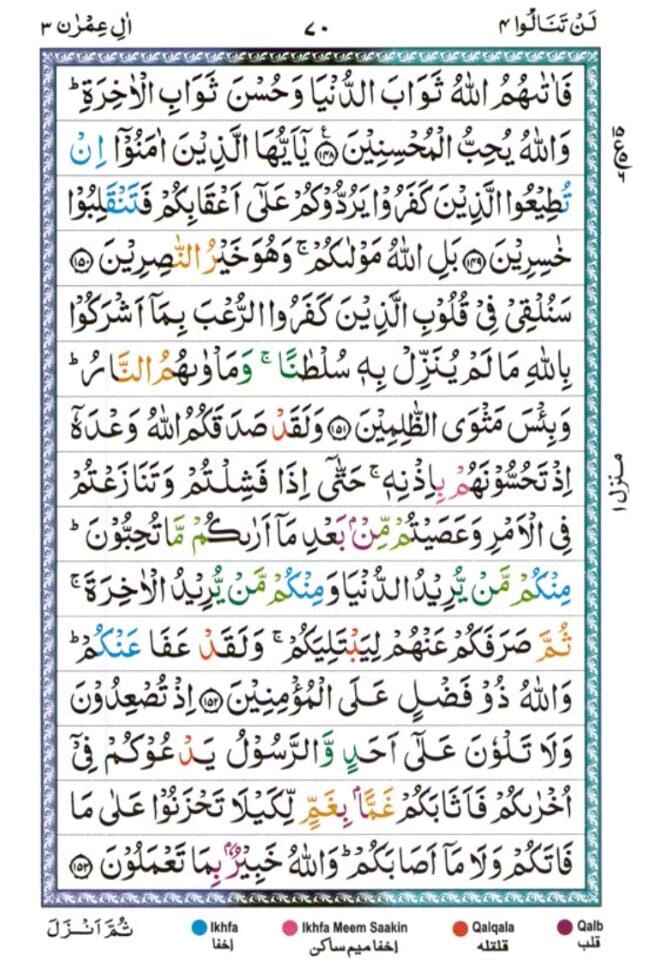 لَنْ تَنَالُوا ٤ ٧٠ اٰلِ عِمْرٰن ٣
فَاٰتٰىهُمُ اللّٰهُ ثَوَابَ الدُّنْيَا وَحُسْنَ ثَوَابِ الْاٰخِرَةِ ؕ
وَاللّٰهُ يُحِبُّ الْمُحْسِنِيْنَ ﴿١٤٨﴾ يٰۤاَيُّهَا الَّذِيْنَ اٰمَنُوْۤا اِنْ
تُطِيْعُوا الَّذِيْنَ كَفَرُوْا يَرُدُّوْكُمْ عَلٰۤى اَعْقَابِكُمْ فَتَنْقَلِبُوْا
خٰسِرِيْنَ ﴿١٤٩﴾ بَلِ اللّٰهُ مَوْلٰىكُمْ ۚ وَهُوَ خَيْرُ النّٰصِرِيْنَ ﴿١٥٠﴾
سَنُلْقِيْ فِيْ قُلُوْبِ الَّذِيْنَ كَفَرُوا الرُّعْبَ بِمَاۤ اَشْرَكُوْا
بِاللّٰهِ مَا لَمْ يُنَزِّلْ بِهٖ سُلْطٰنًا ۚ وَمَاْوٰىهُمُ النَّارُ ؕ
وَبِئْسَ مَثْوَى الظّٰلِمِيْنَ ﴿١٥١﴾ وَلَقَدْ صَدَقَكُمُ اللّٰهُ وَعْدَهٗۤ
اِذْ تَحُسُّوْنَهُمْ بِاِذْنِهٖ ۚ حَتّٰۤى اِذَا فَشِلْتُمْ وَتَنَازَعْتُمْ
فِي الْاَمْرِ وَعَصَيْتُمْ مِّنْۢ بَعْدِ مَاۤ اَرٰىكُمْ مَّا تُحِبُّوْنَ ؕ
مِنْكُمْ مَّنْ يُّرِيْدُ الدُّنْيَا وَمِنْكُمْ مَّنْ يُّرِيْدُ الْاٰخِرَةَ ۚ
ثُمَّ صَرَفَكُمْ عَنْهُمْ لِيَبْتَلِيَكُمْ ۚ وَلَقَدْ عَفَا عَنْكُمْ ؕ
وَاللّٰهُ ذُوْ فَضْلٍ عَلَى الْمُؤْمِنِيْنَ ﴿١٥٢﴾ اِذْ تُصْعِدُوْنَ
وَلَا تَلْوٗنَ عَلٰۤى اَحَدٍ وَّالرَّسُوْلُ يَدْعُوْكُمْ فِيْۤ
اُخْرٰىكُمْ فَاَثَابَكُمْ غَمًّاۢ بِغَمٍّ لِّكَيْلَا تَحْزَنُوْا عَلٰى مَا
فَاتَكُمْ وَلَا مَاۤ اَصَابَكُمْ ؕ وَاللّٰهُ خَبِيْرٌۢ بِمَا تَعْمَلُوْنَ ﴿١٥٣﴾
منزل ١
ثُمَّ اَنْزَلَ
Ikhfa Ikhfa Meem Saakin Qalqala Qalb
اِخفا اِخفا میم ساکن قلقلہ قلب